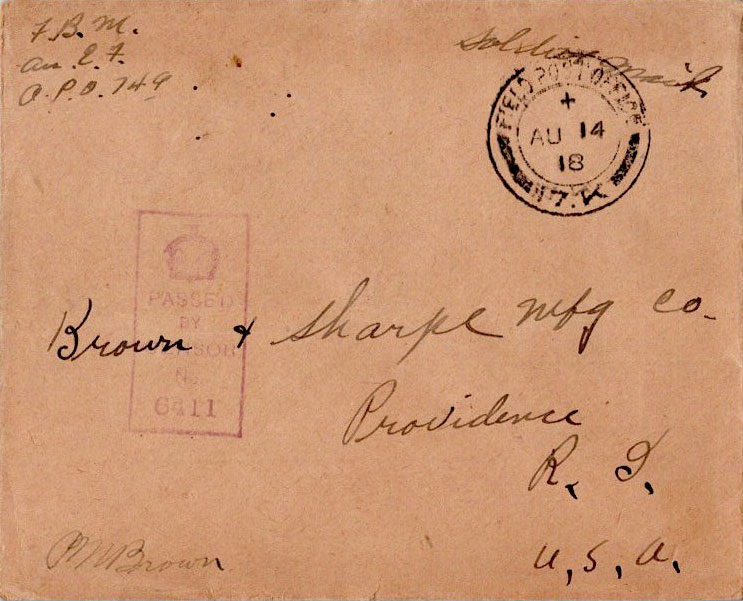 F. B. M.
Am. E. F.
A. P. O. 749
Soldier Mail
FIELD POST OFFICE
AU 14
18
PASSED
BY
CENSOR
No.
6411
Brown & Sharpe Mfg Co.
Providence
R. I.
U. S. A.
Brown